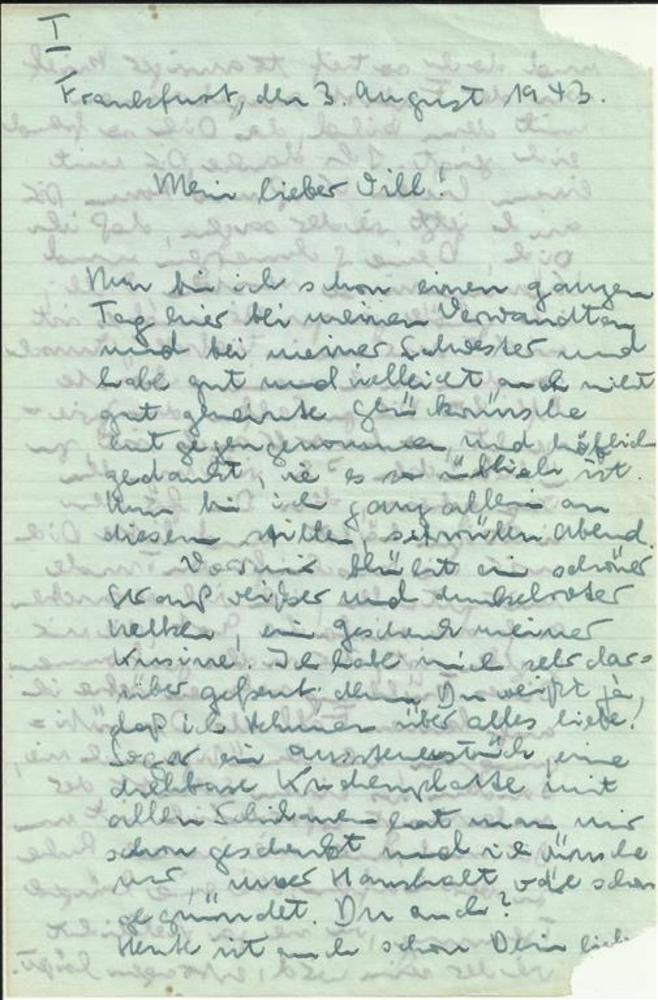 I
Frankfurt, den 3. August 1943.
Mein lieber Till!
Nun bin ich schon einen ganzen
Tag hier bei meinen Verwandten
und bei meiner Schwester und
habe gut und vielleicht auch nicht
gut gemeinte Glückwünsche
entgegengenommen und höflich
gedankt, wie es so üblich ist.
Nun bin ich ganz allein an
diesem stillen, schwülen Abend.
Vor mir blüht ein schöner
Strauß weißer und dunkelroter
Nelken, ein Geschenk meiner
Kusine. Ich habe mich sehr dar=
über gefreut, denn Du weißt ja,
daß ich Blumen über alles liebe!
Sogar ein Aussteuerstück, eine
drehbare Kuchenplatte mit
allen Schikanen hat man mir
schon geschenkt und ich wünsche
nur, unser Haushalt wäre schon
gegründet. Du auch?
Heute ist auch schon Dein